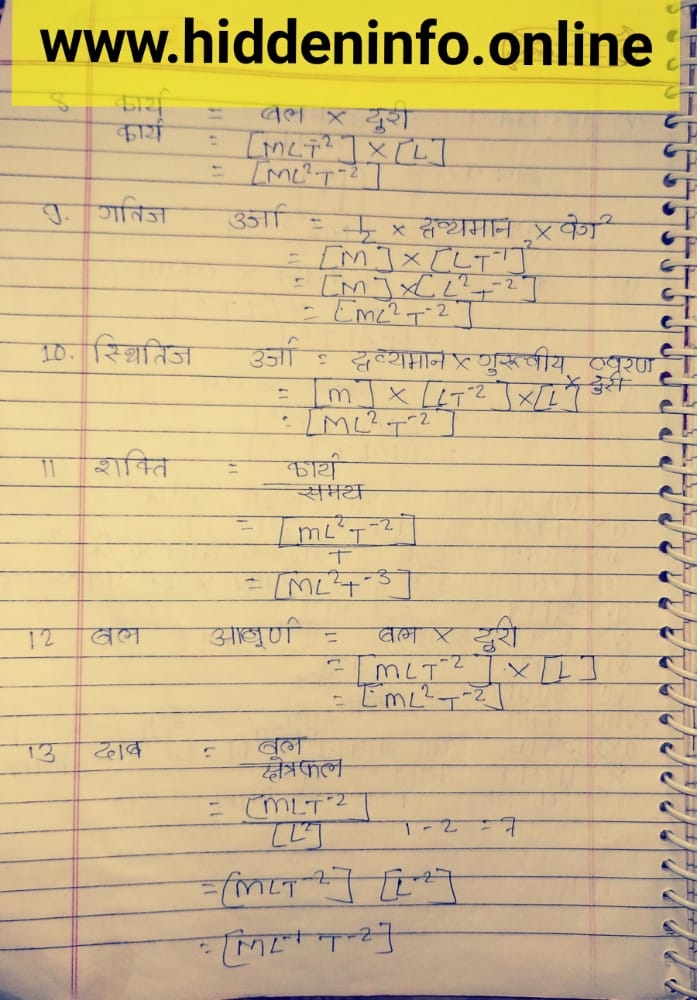 www.hiddeninfo.online
8 कार्य = बल × दुरी
कार्य = [MLT⁻²] × [L]
= [ML²T⁻²]
9. गतिज उर्जा = 1/2 × द्रव्यमान × वेग²
= [M] × [LT⁻¹]²
= [M] × [L²T⁻²]
= [ML²T⁻²]
10. स्थितिज उर्जा = द्रव्यमान × गुरूत्वीय त्वरण × दुरी
= [M] × [LT⁻²] × [L]
: [ML²T⁻²]
11 शक्ति = कार्य
समय
= [ML²T⁻²]
T
= [ML²T⁻³]
12 बल आघूर्ण = बल × दुरी
= [MLT⁻²] × [L]
= [ML²T⁻²]
13 दाब = बल
क्षेत्रफल
= [MLT⁻²]
[L²] 1-2 =
= [MLT⁻²] [L⁻²]
= [ML⁻¹T⁻²]